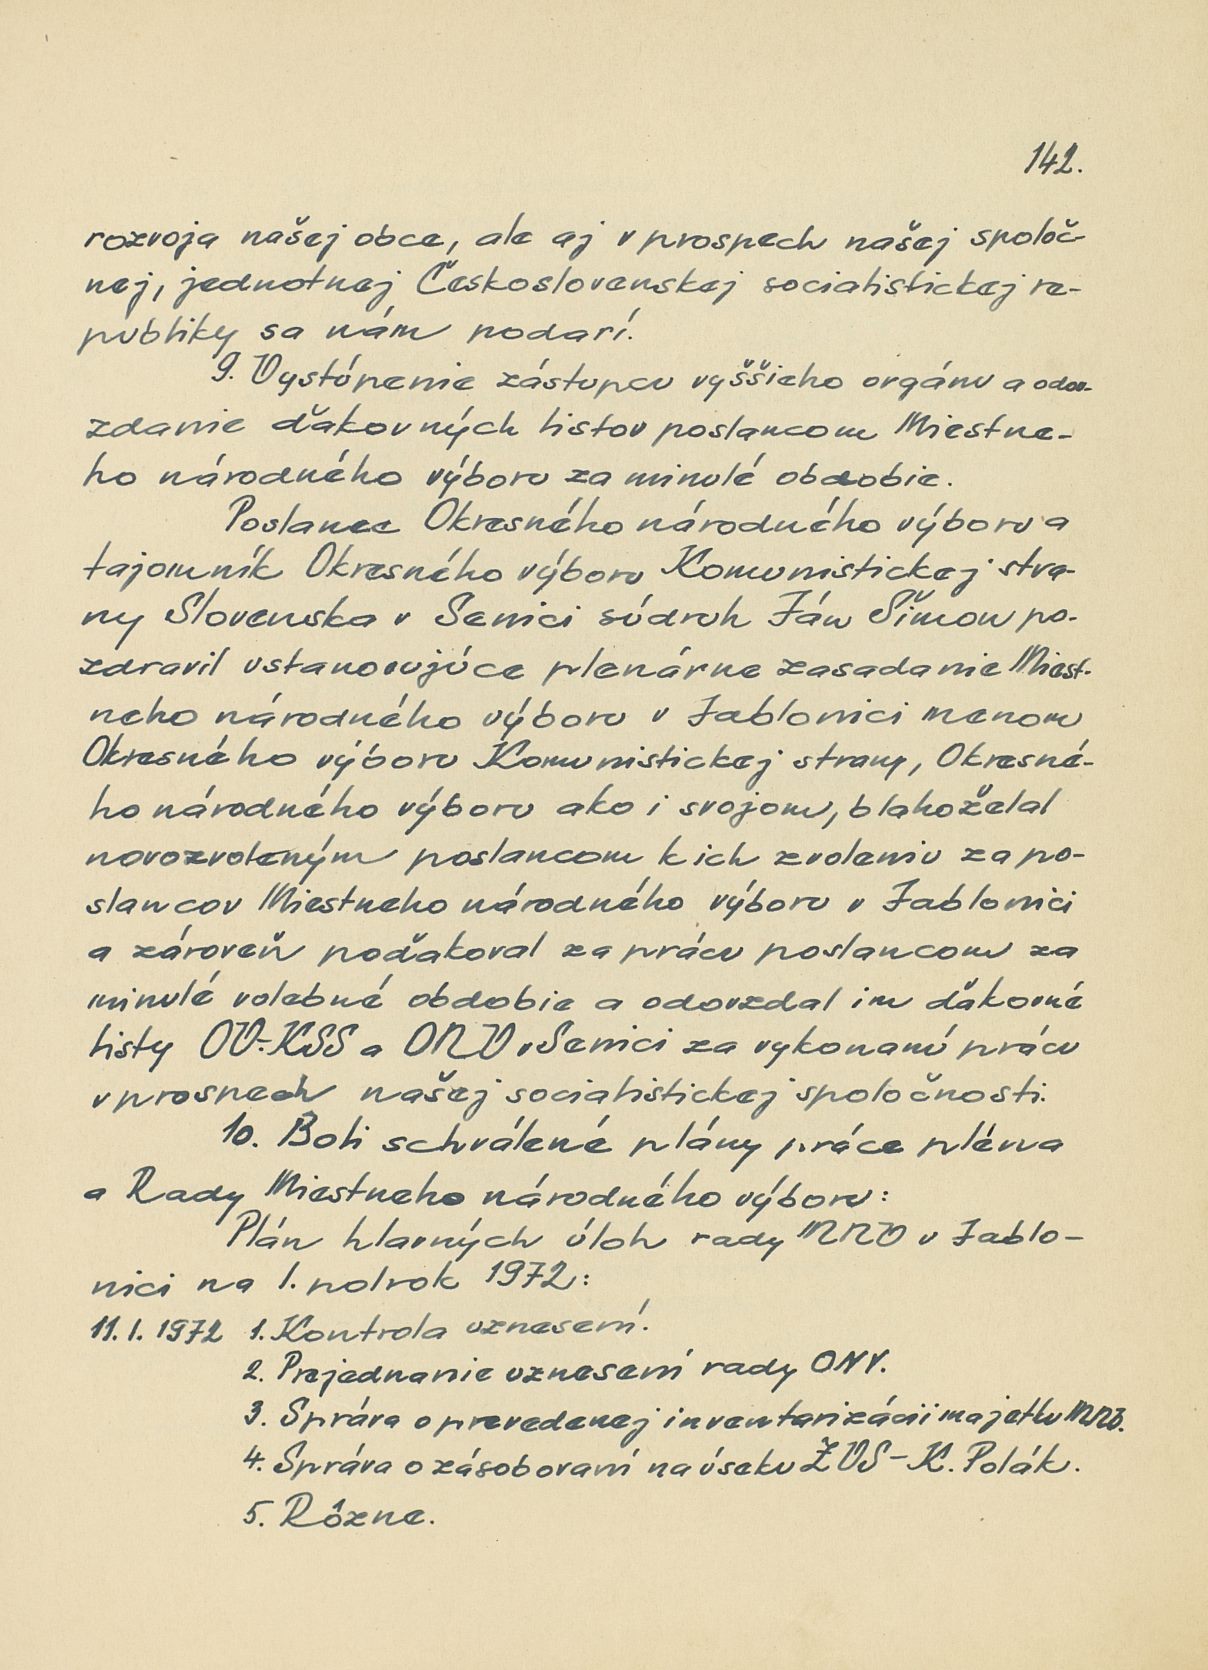 142.
rozvoja našej obce, ale aj v prospech našej spoloč-
nej, jednotnej Československej socialistickej re-
publiky sa nám podarí.
9. Vystúpenie zástupcu vyššieho orgánu a odov-
zdanie ďakovných listov poslancom Miestne-
ho národného výboru za minulé obdobie.
Poslanec Okresného národného výboru a
tajomník Okresného výboru Komunistickej stra-
ny Slovenska v Senici súdruh Ján Šimon po-
zdravil ustanovujúce plenárne zasadanie Miest-
neho národného výboru v Jablonici menom
Okresného výboru Komunistickej strany, Okresné-
ho národného výboru ako i svojom, blahoželal
novozvoleným poslancom k ich zvoleniu za po-
slancov Miestneho národného výboru v Jablonici
a zároveň poďakoval za prácu poslancom za
minulé volebné obdobie a odovzdal im ďakovné
listy OV-KSS a ONV v Senici za vykonanú prácu
v prospech našej socialistickej spoločnosti.
10. Boli schválené plány práce pléna
a Rady Miestneho národného výboru:
Plán hlavných úloh rady MNV v Jablo-
nici na 1. polrok 1972:
11. 1. 1972 1. Kontrola uznesení.
2. Prejednanie uznesení rady ONV.
3. Správa o prevedenej inventarizácii majetku MNV.
4. Správa o zásobovaní na úseku ŽVS - K. Polák.
5. Rôzne.